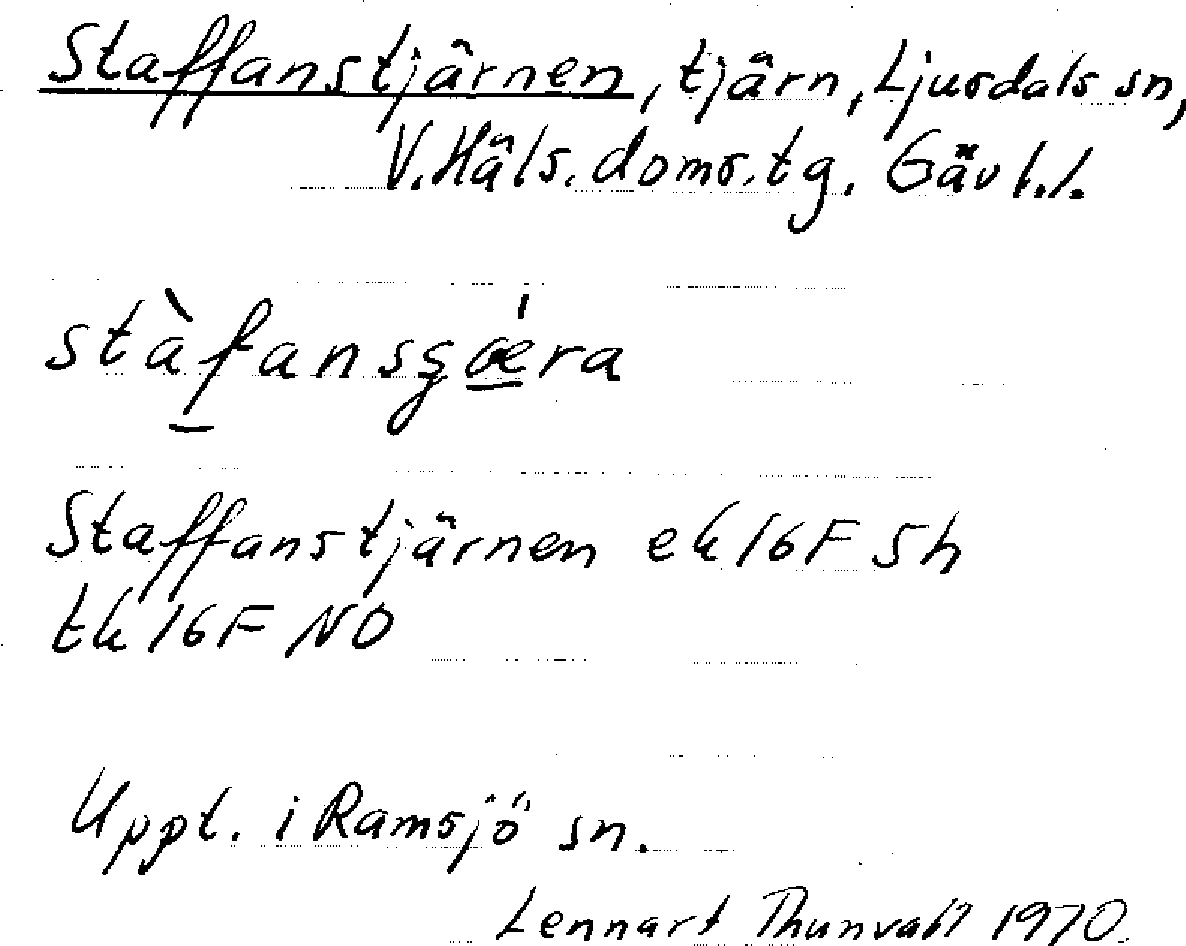 Staffanstjärnen, tjärn, Ljusdals sn,
V. Häls. doms. tg. Gävl. l.
stàfansʂǽra
Staffanstjärnen ek 16F 5h
tk 16F NO
Uppt. i Ramsjö sn.
Lennart Thunvall 1970.